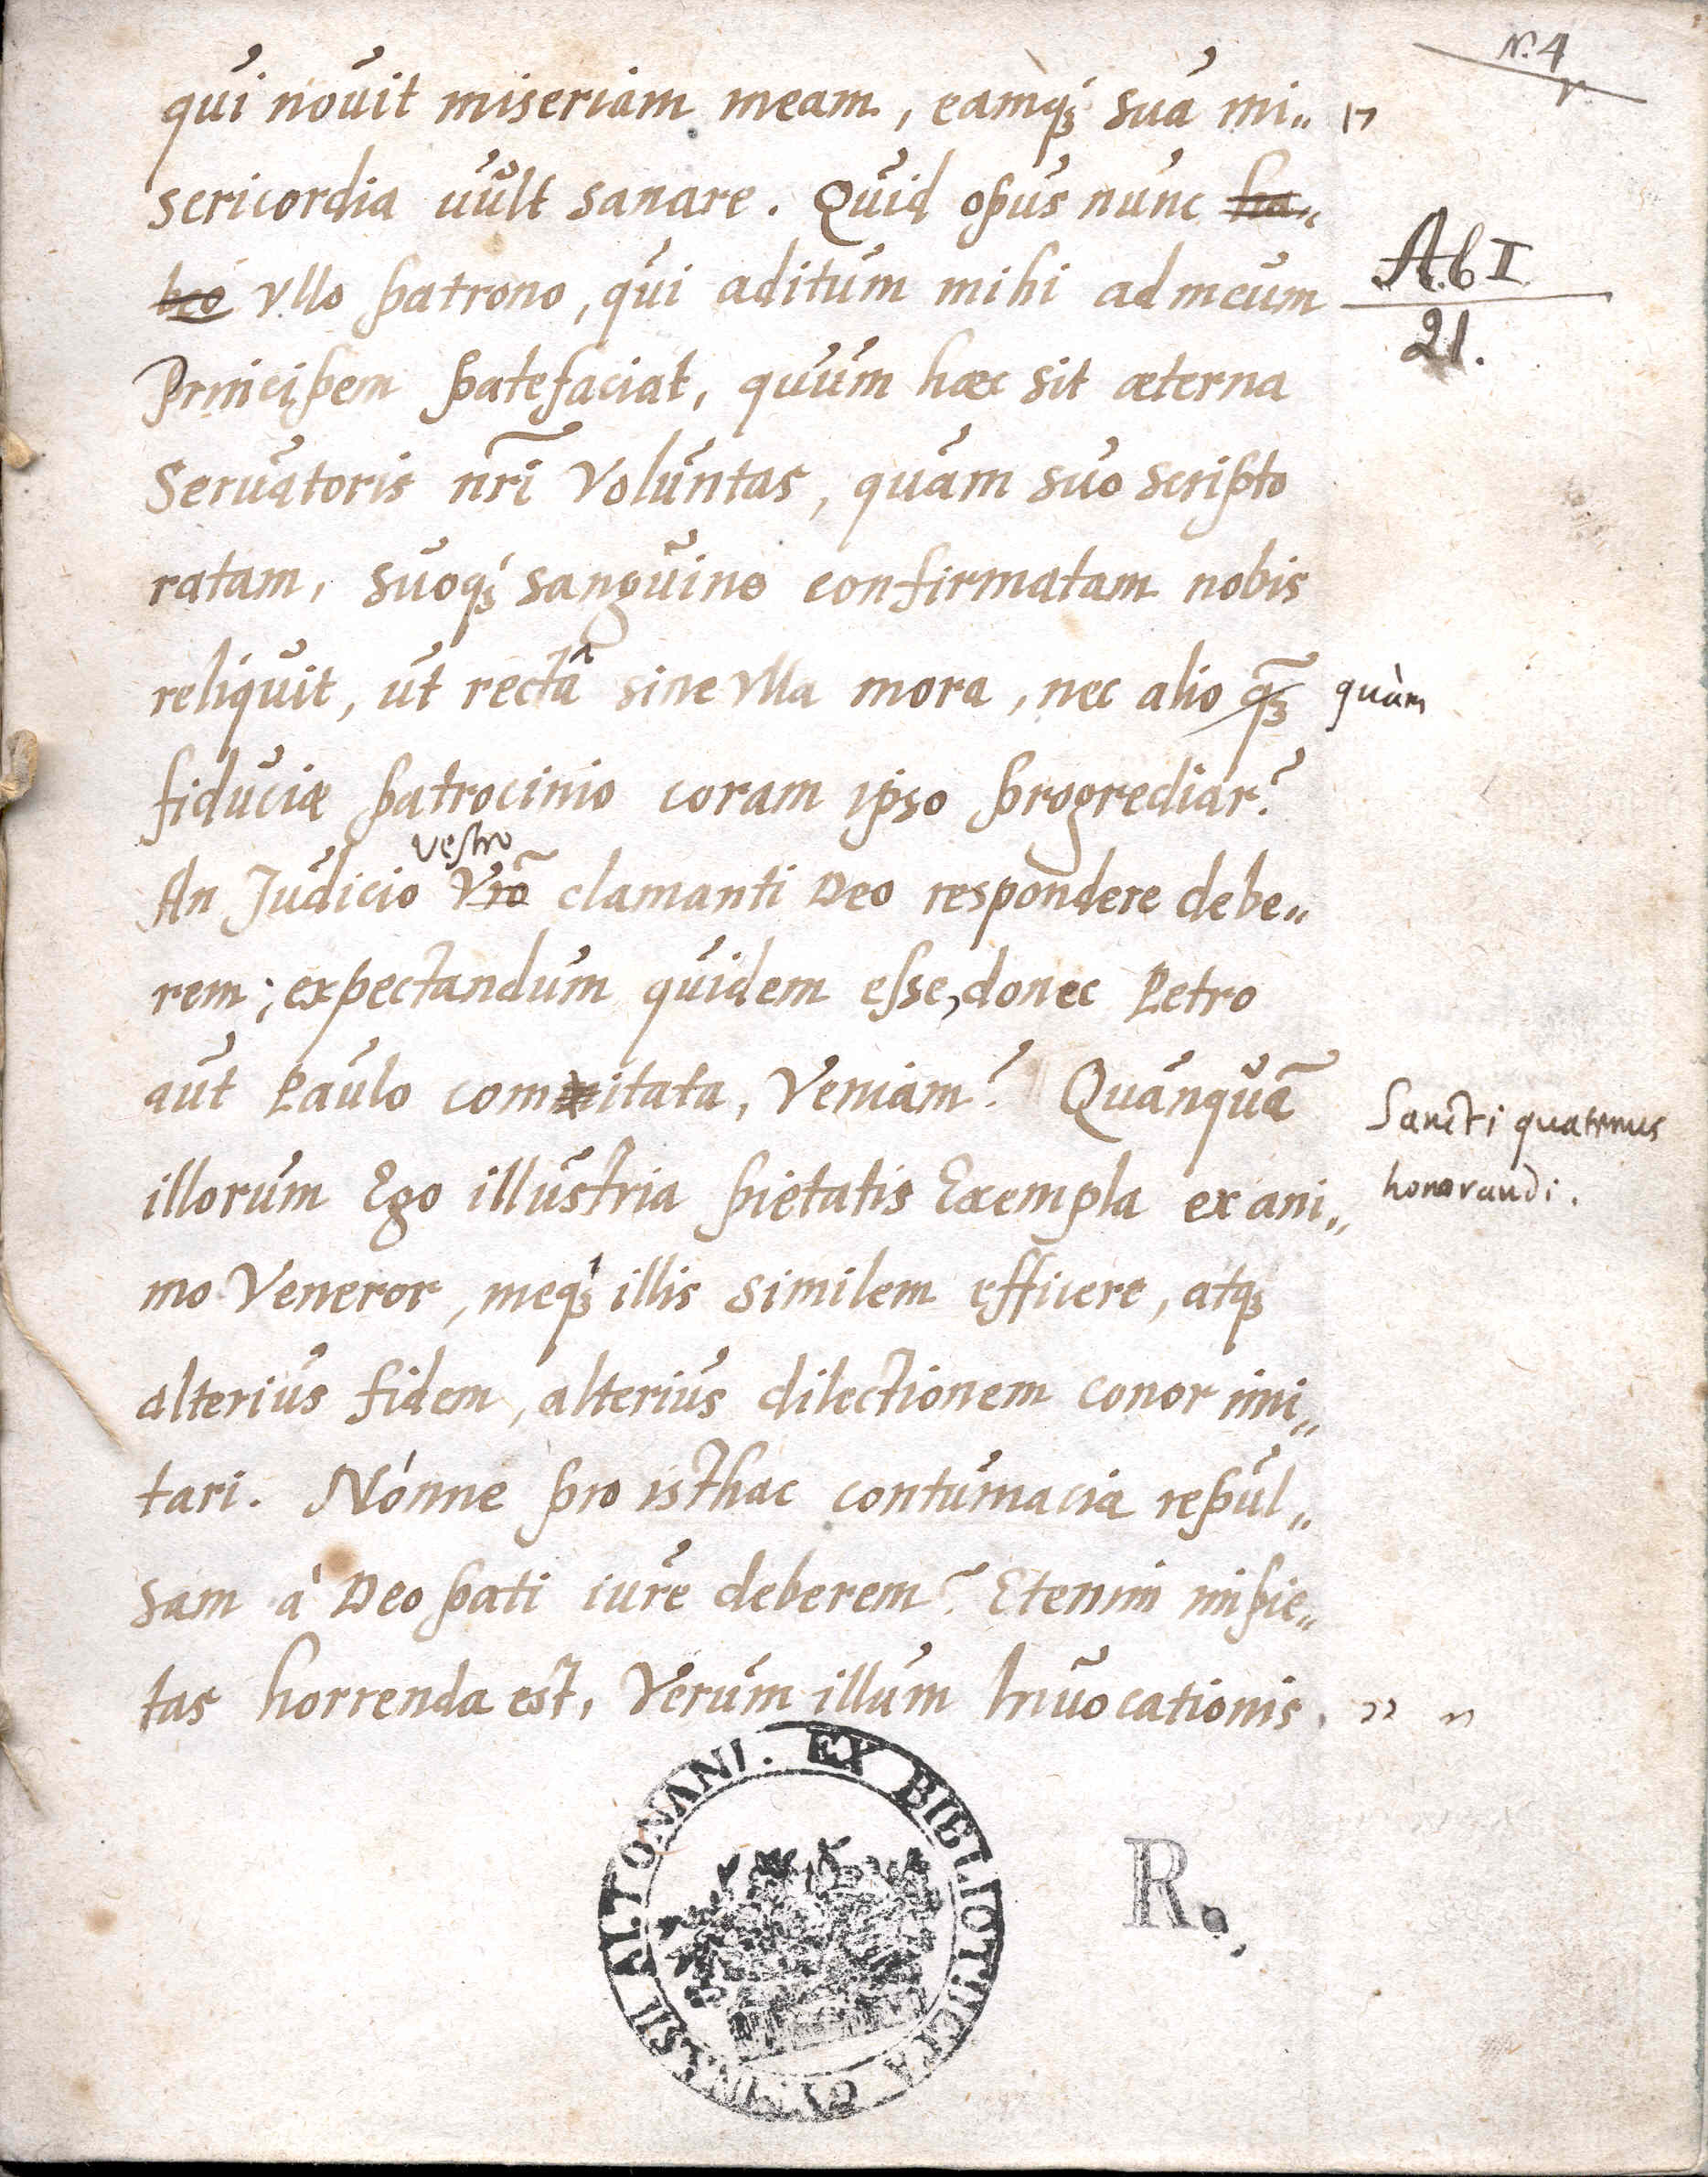 N. 4
qui nouit miseriam meam, eamq; sua mi„
sericordia uult sanare. Quid opus nunc ha„
beo vllo patrono, qui aditum mihi ad meum
A.b I
21.
Principem patefaciat, quum hæc sit æterna
Seruatoris nr̃i Voluntas, quam suo scripto
ratam, suoq; sanguine confirmatam nobis
reliquit, ut rectâ sine vlla mora, nec alio q̃; quàm
fiduciæ patrocinio coram ipso progrediar?
vestro
An Judicio Vr̃o clamanti Deo respondere debe„
rem; expectandum quidem esse, donec Petro
aut Paulo comitata, Veniam? Quanquã
Sancti quatenus
honorandi.
illorum Ego illustria pietatis Exempla ex ani„
mo Veneror, meq; illis similem efficere, atq;
alterius fidem, alterius dilectionem conor imi„
tari. Nónne pro isthac contumacia repul„
sam à Deo pati iure deberem? Etenim impie„
tas horrenda est, Verum illum Inuocationis
EX BIBLIOTHECA GYMNASII ALTONANI.
R.